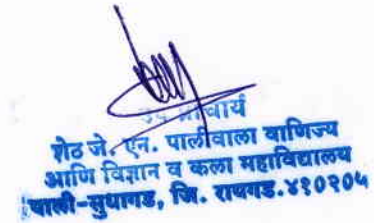 उप प्राचार्य
शेठ जे. एन. पालीवाला वाणिज्य
आणि विज्ञान व कला महाविद्यालय
पाली-सुधागड, जि. रायगड.४१०२०५